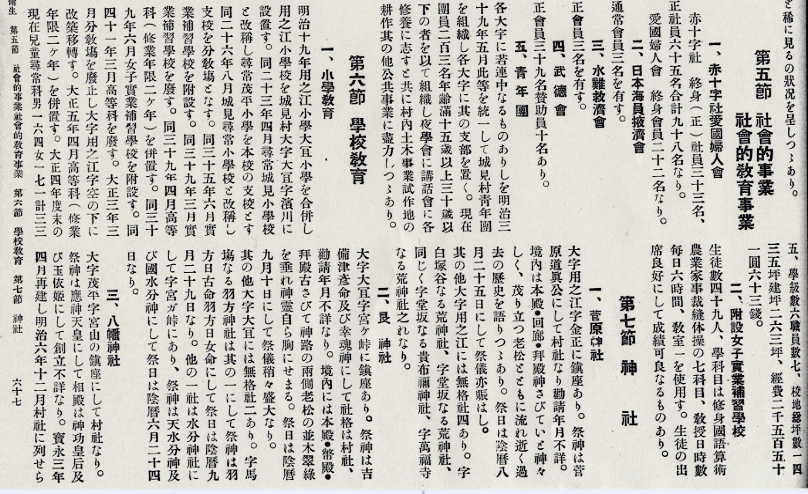 ど稀に見るの狀況を呈しつゝあり。
第五節　社會的事業
社會的敎育事業
一、赤十字社愛國婦人會
赤十字社　終身（正）社員三十三名、
正社員六十五名合計九十八名なり。
愛國婦人會　終身會員二十二名なり。
二、日本海員掖濟會
通常會員三名を有す。
三、水難救濟會
正會員三名を有す。
四、武德會
正會員三十九名贊助員十名あり。
五、靑年團
各大字に若連中なるものありしを明治三
十九年五月此等を統一して城見村靑年團
を組織し各大字に其の支部を置く。現在
團員二百三名年齡滿十五歲以上三十歲以
下の者を以て組織し夜學會に講話會に各
修養に志すと共に村內土木事業試作地の
耕作其の他公共事業に盡力しつゝあり。
第六節　學校敎育
一、小學敎育
明治十九年用之江小學大宜小學を合併し
用之江小學校を城見村大字大宜字濱川に
設置す。同二十三年四月尋常城見小學校
と改稱し尋常茂平小學を本校の支校とす
同二十六年八月城見尋常小學校と改稱し
支校を分敎塲となす。同三十五年六月實
業補習學校を附設す。同三十九年三月實
業補習學校を廢す。同三十九年四月高等
科（修業年限二ヶ年）を併置す。同三十
九年六月女子實業補習學校を附設す。同
四十一年三月高等科を廢す。大正三年三
月分敎塲を廢止し大字用之江字空の下に
改築移轉す。大正五年四月高等科（修業
年限二ヶ年）を併置す。大正四年度末の
現在兒童尋常科男一六四女一七一計三三
五、學級數六職員數七、校地總坪數一四
三五坪建坪二六三坪、經費二千五百五十
一圓六十三錢。
二、附設女子實業補習學校
生徒數四十九人、學科目は修身國語算術
農業家事裁縫體操の七科目、敎授日時數
每日六時間、敎室一を使用す。生徒の出
席良好にして成績可良なるものあり。
第七節　神　社
一、菅原神社
大字用之江字金正に鎭座あり。祭神は菅
原道眞公にして村社なり勸請年月不詳。
境內は本殿・回廊・拜殿神さびていと神々
しく、茂り立つ老松とともに流れ逝く過
去の歷史を語りつゝあり。祭日は陰曆八
月二十五日にして祭儀亦賑はし。
其の他大字用之江には無格社四あり。字
白塚谷なる荒神社、字堂坂なる荒神社、
同じく字堂坂なる貴布禰神社、字萬福寺
なる荒神社之れなり。
二、艮　神社
大字大宜字宮ヶ峠に鎭座あり。祭神は吉
備津彥命及び幸魂神にして社格は村社、
勸請年月不詳なり。境內には本殿・幣殿・
拜殿古さびて神路の兩側老松の並木翠綠
を垂れ神靈自ら胸にせまる。祭日は陰曆
九月十日にして祭儀稍々盛大なり。
其の他大字大宜には無格社二あり。字馬
塲なる羽方神社は其の一にして祭神は羽
方日古命羽方日女命にして祭日は陰曆九
月二十九日なり。他の一社は水分神社に
して字宮ガ峠にあり、祭神は天水分神及
び國水分神にして祭日は陰曆六月二十四
日なり。
三、八幡神社
大字茂平字宮山の鎭座にして村社なり。
祭神は應神天皇にして相殿は神功皇后及
び玉依姬にして創立不詳なり。寶永三年
四月再建し明治六年十二月村社に列せら
第五節　社會的事業社會的敎育事業　第六節　學校敎育　第七節　神社
六十七